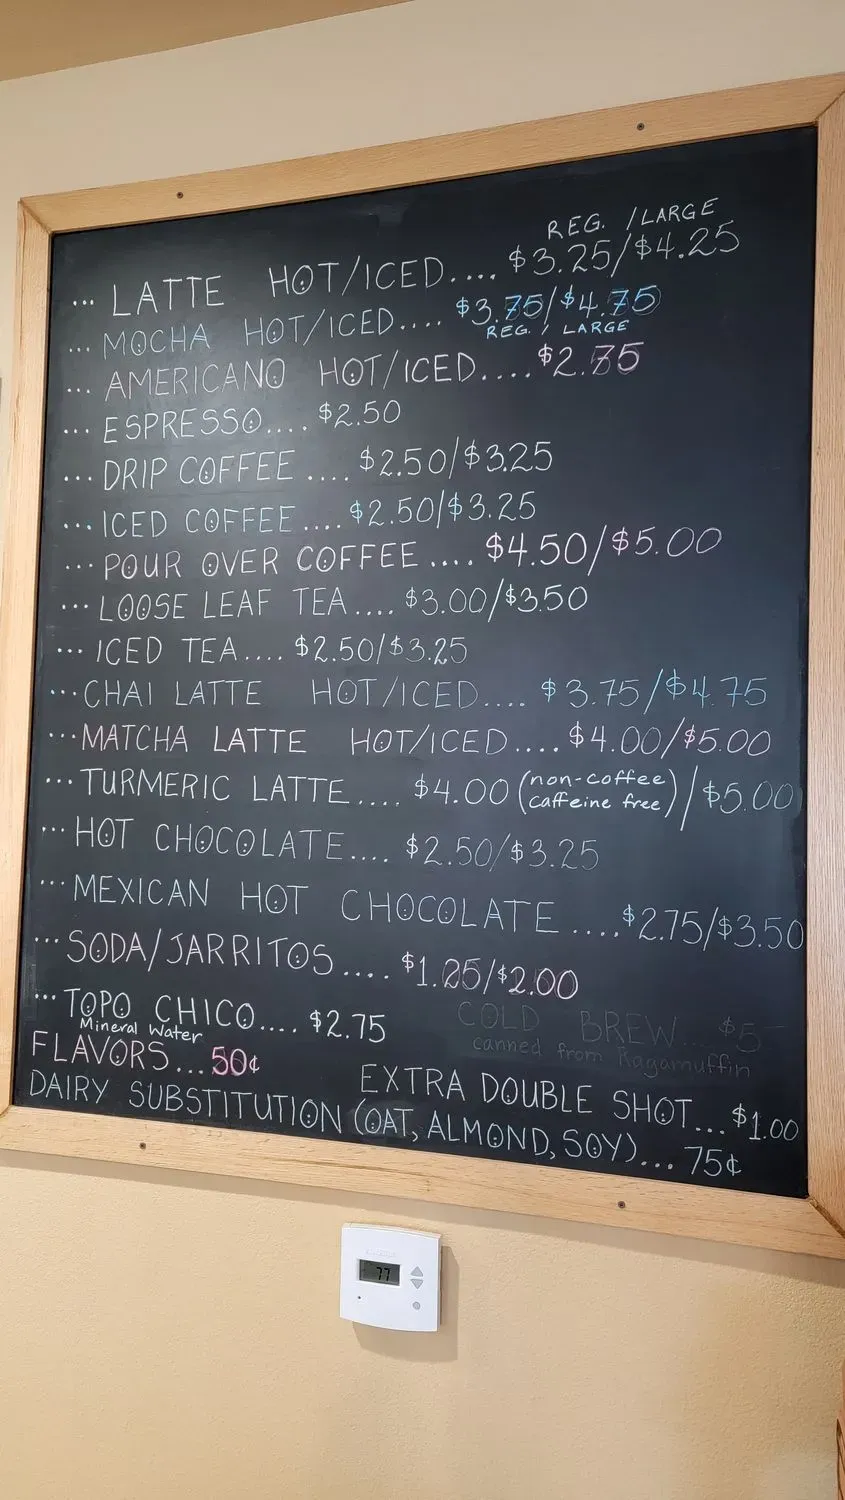 REG. / LARGE
... LATTE HOT/ICED.... $3.25/$4.25
... MOCHA HOT/ICED.... $3.75/$4.75
REG. / LARGE
... AMERICANO HOT/ICED.... $2.75
... ESPRESSO.... $2.50
... DRIP COFFEE .... $2.50/$3.25
... ICED COFFEE .... $2.50/$3.25
... POUR OVER COFFEE .... $4.50/$5.00
... LOOSE LEAF TEA.... $3.00/$3.50
... ICED TEA.... $2.50/$3.25
... CHAI LATTE HOT/ICED.... $3.75/$4.75
... MATCHA LATTE HOT/ICED.... $4.00/$5.00
... TURMERIC LATTE.... $4.00 (non-coffee caffeine free) / $5.00
... HOT CHOCOLATE.... $2.50/$3.25
... MEXICAN HOT CHOCOLATE ....$2.75/$3.50
... SODA/JARRITOS .... $1.25/$2.00
... TOPO CHICO.... $2.75
Mineral Water
COLD BREW... $5
canned from Ragamuffin
FLAVORS... 50¢
EXTRA DOUBLE SHOT... $1.00
DAIRY SUBSTITUTION (OAT, ALMOND, SOY)... 75¢
77